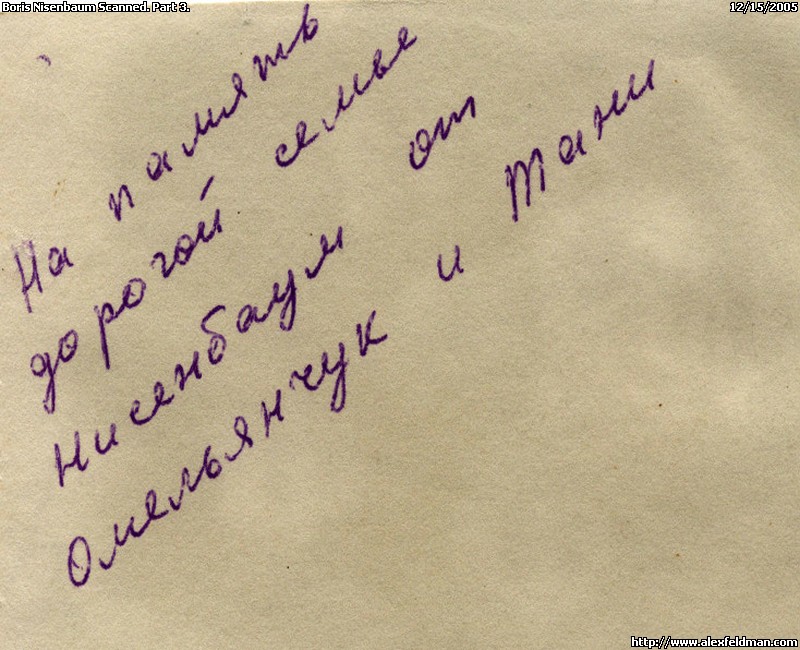 Boris Nisenbaum Scanned. Part 3.
12/15/2005
На память
дорогой семье
Нисенбаум от
Омельянчук и Тани
http://www.alexfeldman.com